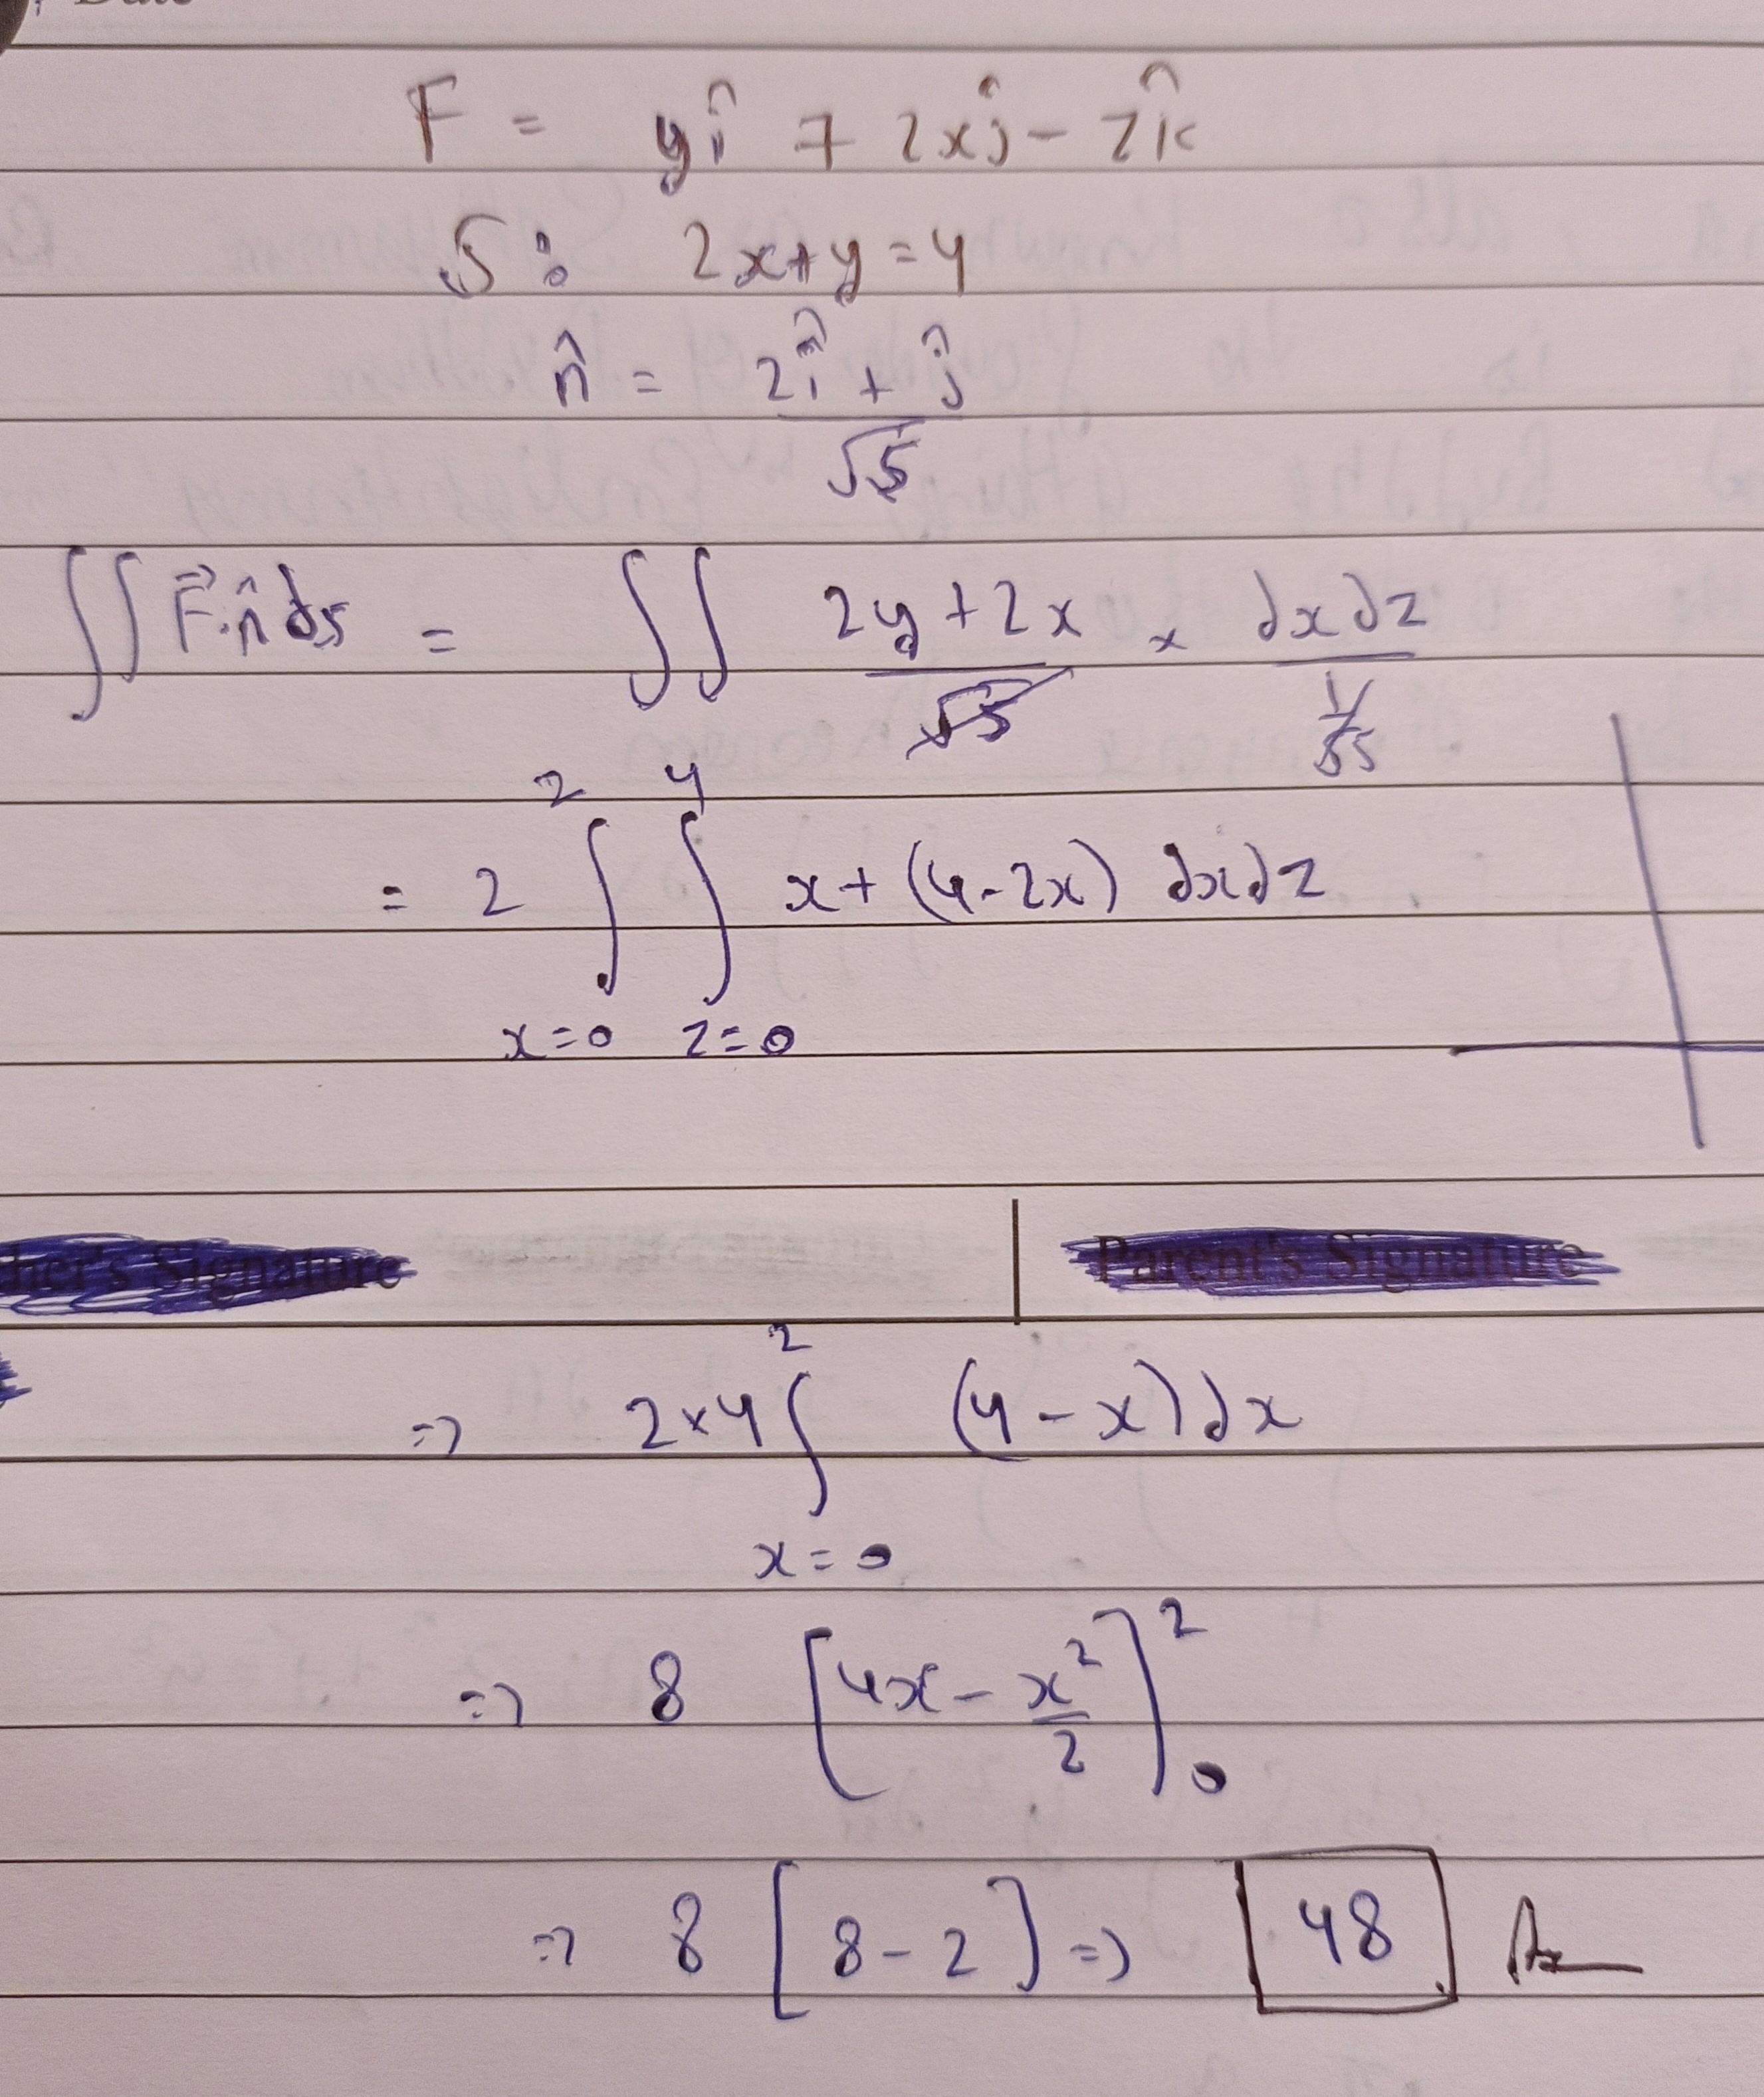 F = yî + 2xĵ - zk̂
S : 2x+y=4
n̂ = (2î + ĵ)/√5
∬ F⃗.n̂ ds = ∬ (2y+2x)/√5 × dxdz/(1/√5)
= 2 ∫_{x=0}^{2} ∫_{z=0}^{4} x+(4-2x) dxdz
Parent's Signature
⇒ 2×4 ∫_{x=0}^{2} (4-x)dx
⇒ 8 [4x - x²/2]₀²
⇒ 8 [8-2] ⇒ 48 Ans